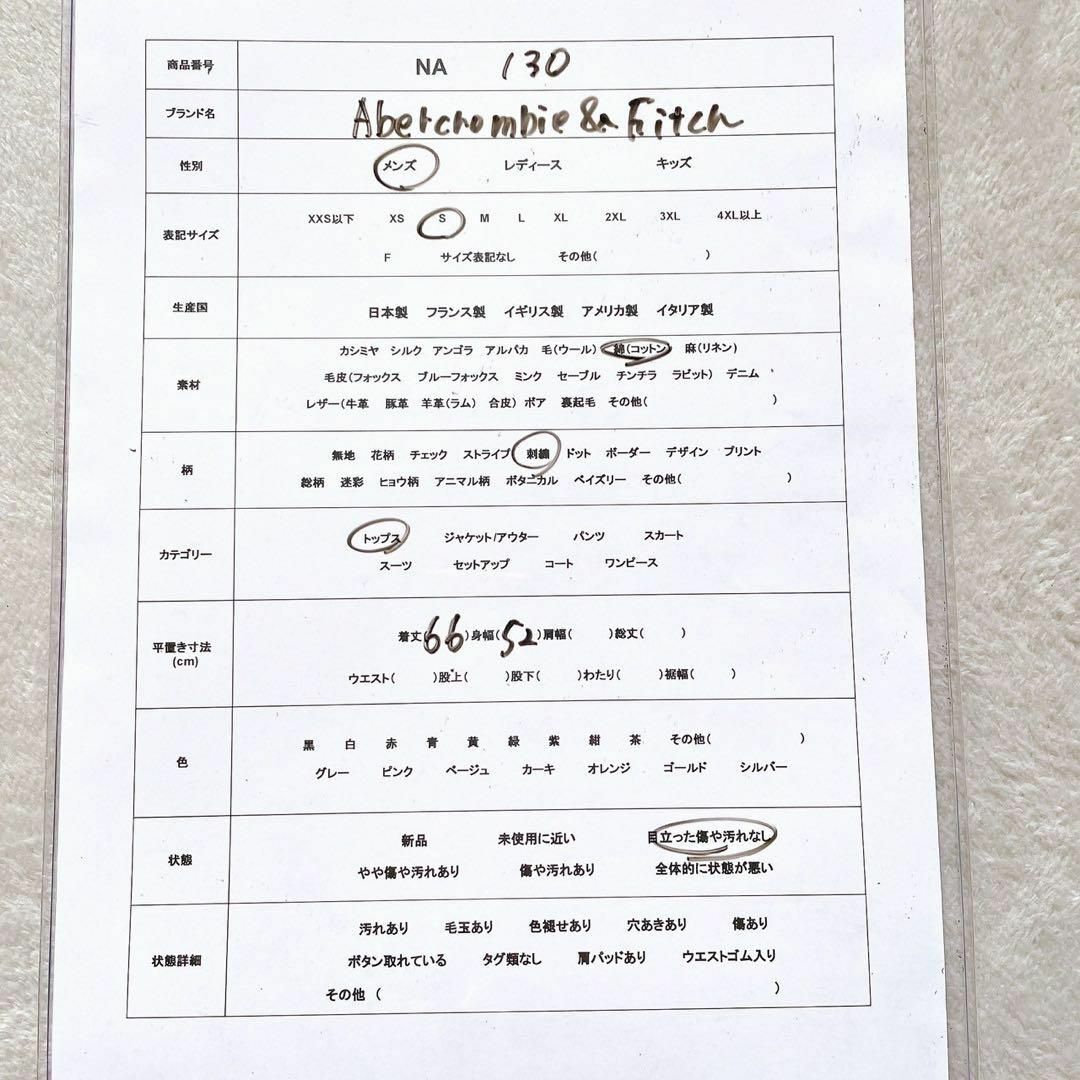 商品番号 NA 130
ブランド名 Abercrombie & Fitch
性別 メンズ レディース キッズ
XXS以下 XS S M L XL 2XL 3XL 4XL以上
表記サイズ
F サイズ表記なし その他( )
生産国 日本製 フランス製 イギリス製 アメリカ製 イタリア製
カシミヤ シルク アンゴラ アルパカ 毛(ウール) 綿(コットン) 麻(リネン)
素材 毛皮(フォックス ブルーフォックス ミンク セーブル チンチラ ラビット) デニム
レザー(牛革 豚革 羊革(ラム) 合皮) ボア 裏起毛 その他( )
無地 花柄 チェック ストライプ 刺繍 ドット ボーダー デザイン プリント
柄
総柄 迷彩 ヒョウ柄 アニマル柄 ボタニカル ペイズリー その他( )
トップス ジャケット/アウター パンツ スカート
カテゴリー
スーツ セットアップ コート ワンピース
着丈(66)身幅(52)肩幅( )総丈( )
平置き寸法
(cm)
ウエスト( )股上( )股下( )わたり( )裾幅( )
黒 白 赤 青 黄 緑 紫 紺 茶 その他( )
色
グレー ピンク ベージュ カーキ オレンジ ゴールド シルバー
新品 未使用に近い 目立った傷や汚れなし
状態
やや傷や汚れあり 傷や汚れあり 全体的に状態が悪い
汚れあり 毛玉あり 色褪せあり 穴あきあり 傷あり
状態詳細 ボタン取れている タグ類なし 肩パッドあり ウエストゴム入り
その他 ( )